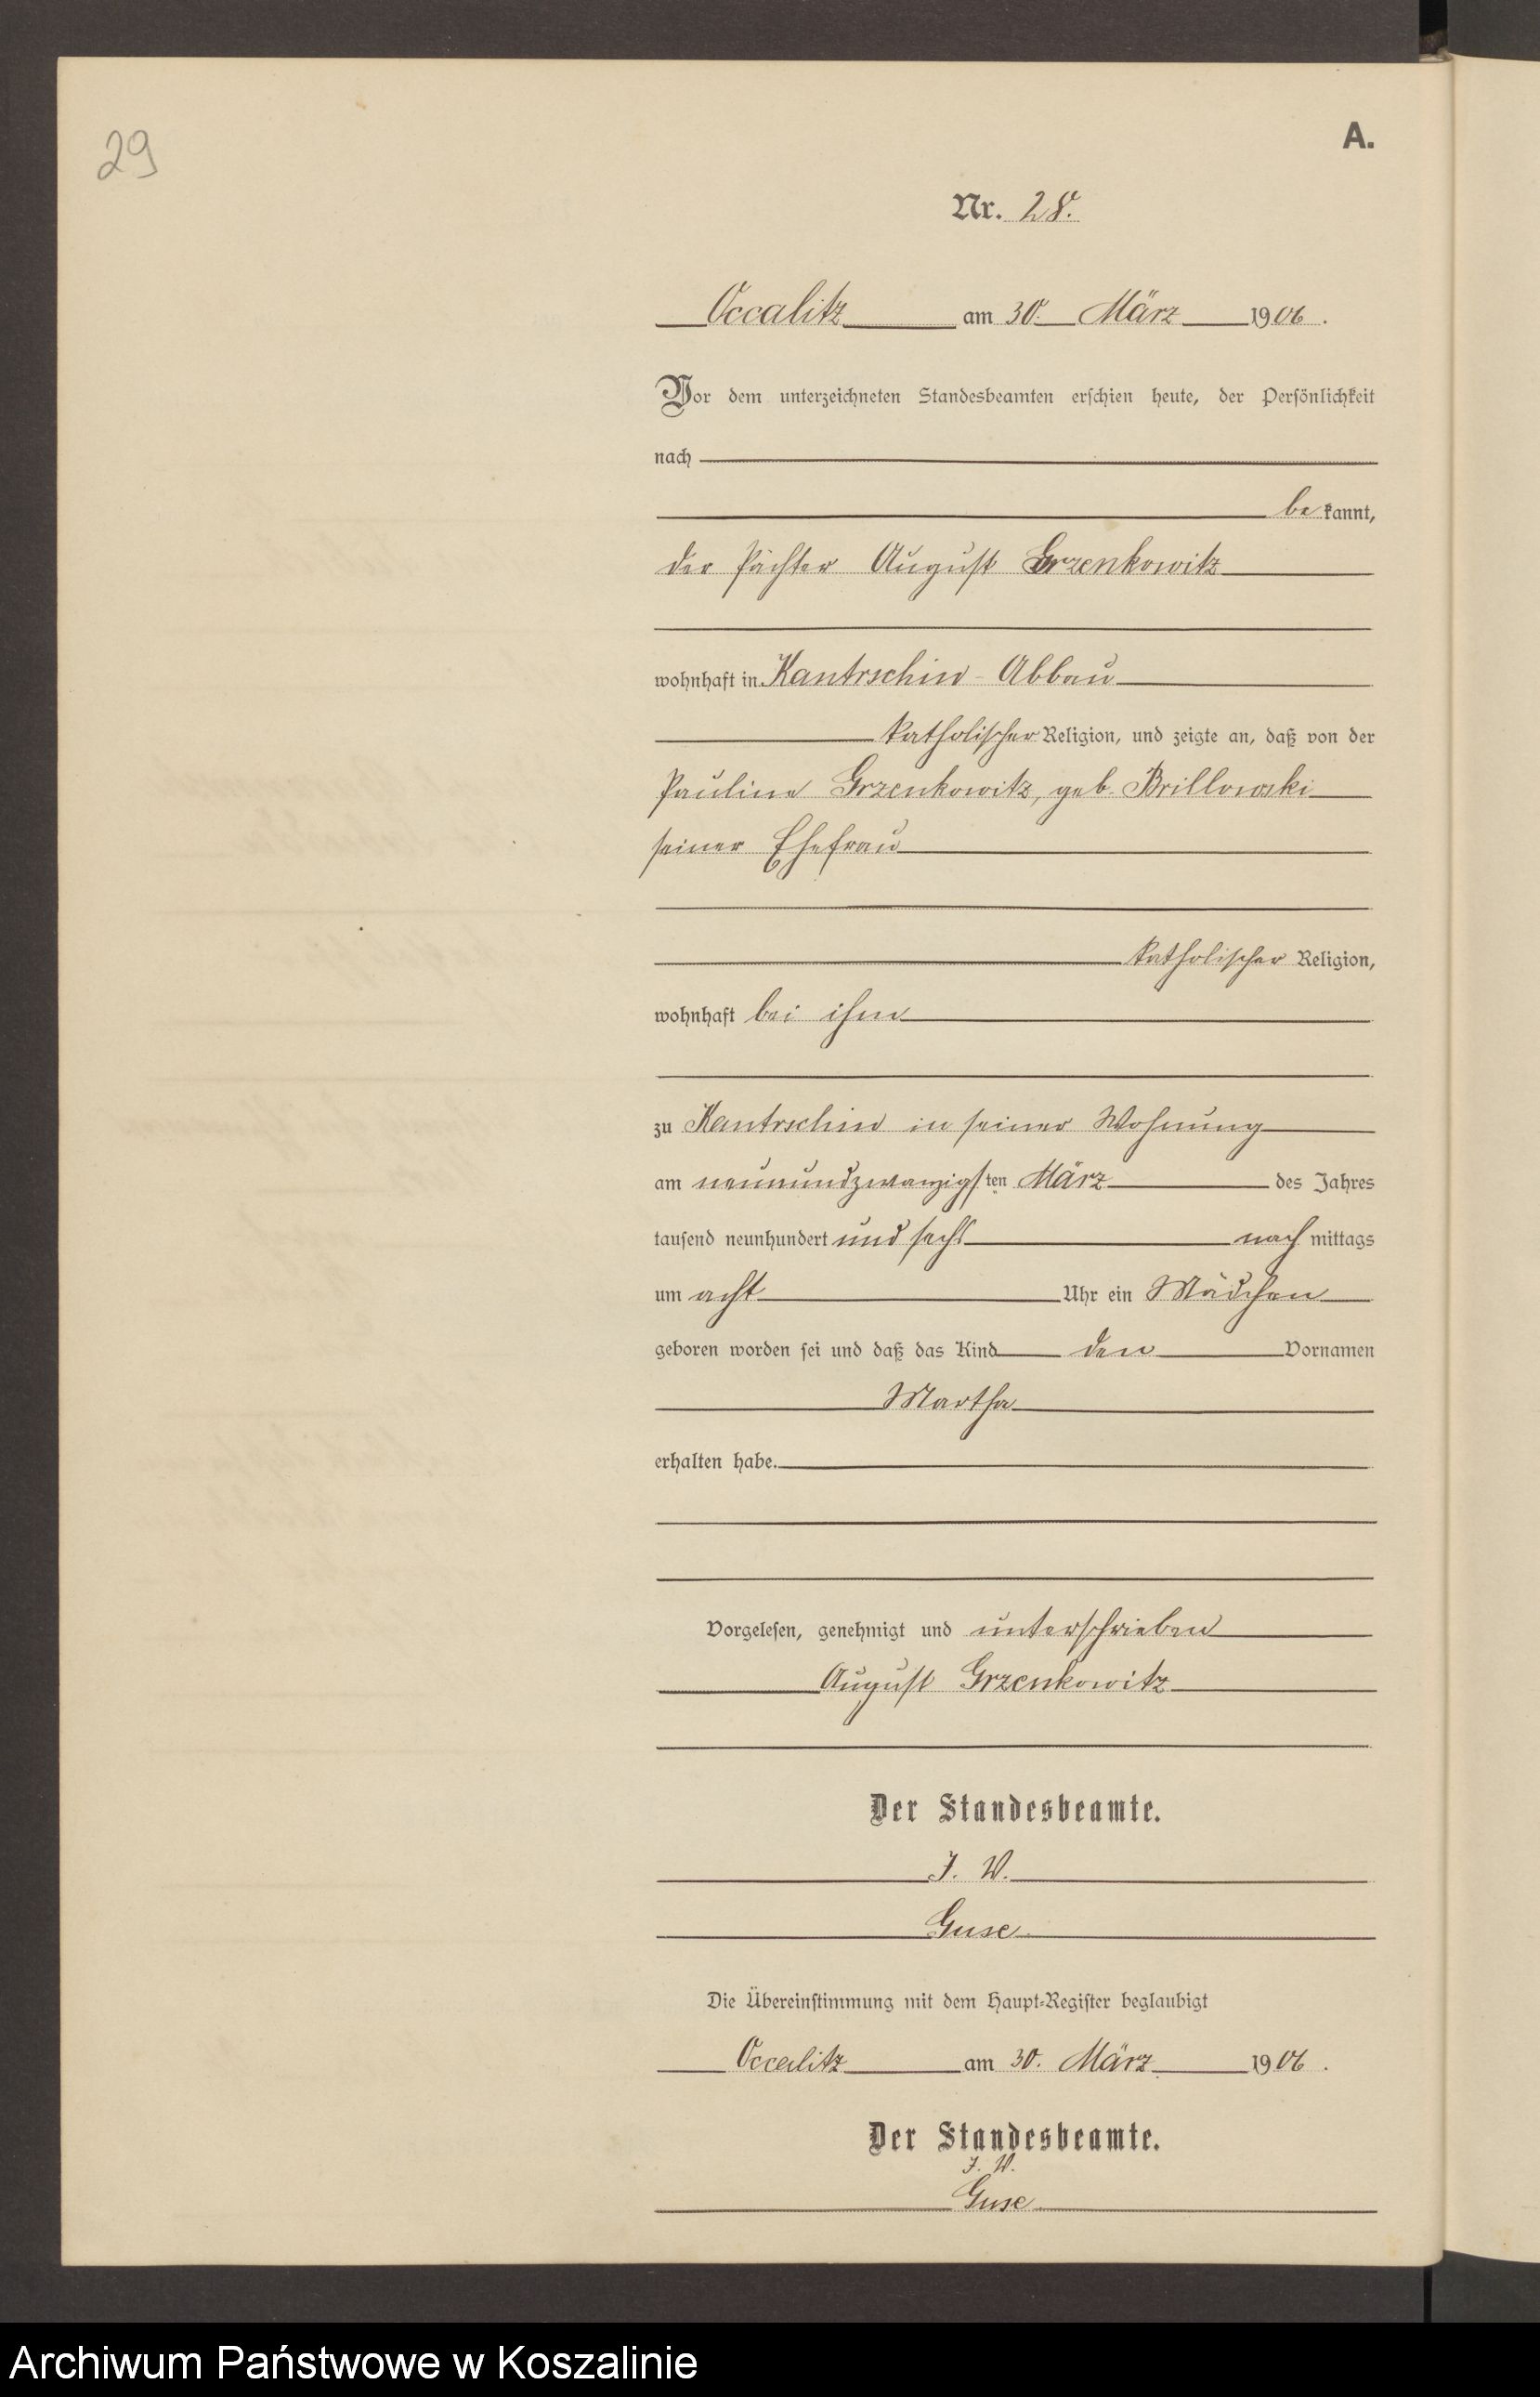 29
A.
Nr. 28.
Occalitz am 30. März 1906.
Vor dem unterzeichneten Standesbeamten erschien heute, der Persönlichkeit
nach
be kannt,
der Pächter August Grzenkowitz
wohnhaft in Kantrschin - Abbau
katholischer Religion, und zeigte an, daß von der
Pauline Grzenkowitz, geb. Brillowski
seiner Ehefrau
katholischer Religion,
wohnhaft bei ihm
zu Kantrschin in seiner Wohnung
am neunundzwanzigsten März des Jahres
tausend neunhundert und sechs nach mittags
um acht Uhr ein Mädchen
geboren worden sei und daß das Kind den Vornamen
Martha
erhalten habe.
Vorgelesen, genehmigt und unterschrieben
August Grzenkowitz
Der Standesbeamte.
J. V.
Guse
Die Übereinstimmung mit dem Haupt-Register beglaubigt
Occalitz am 30. März 1906.
Der Standesbeamte.
J. V.
Guse
Archiwum Państwowe w Koszalinie